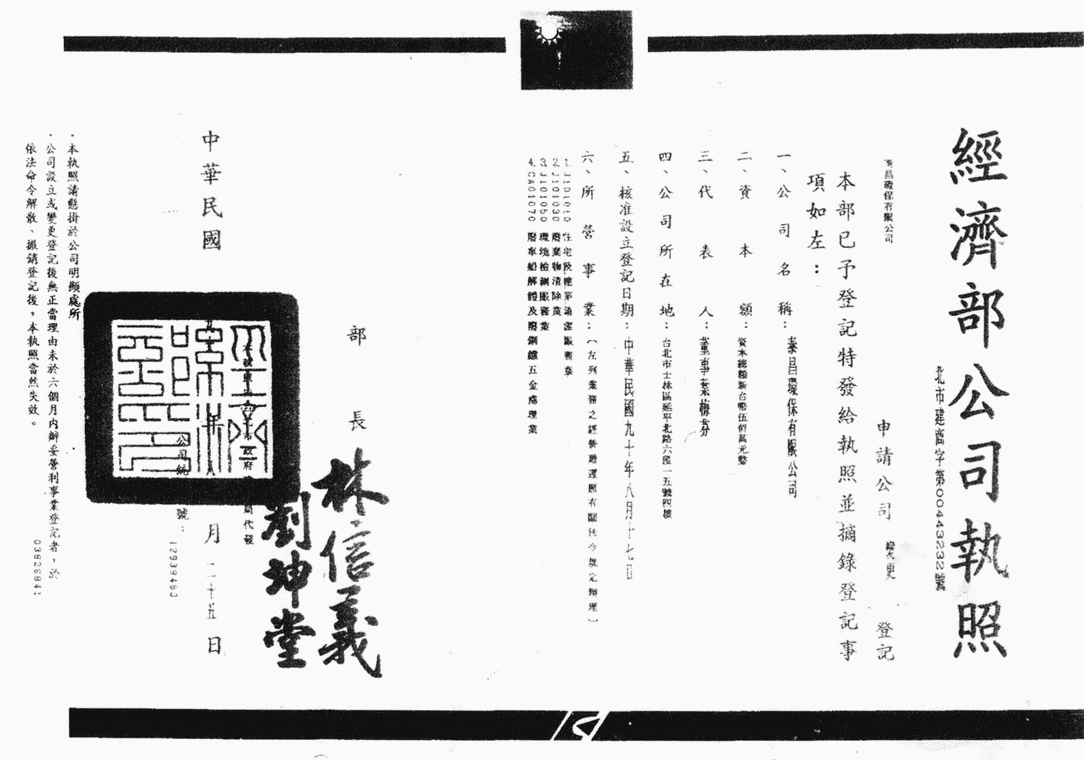 經濟部公司執照
北市建商字第00443232號
昌環保有限公司
申請公司 變更 登記
本部已予登記特發給執照並摘錄登記事
項如左：
一、公司名稱：昌環保有限公司
二、資本額：資本總額新台幣伍佰萬元整
三、代表人：
四、公司所在地：台北市士林區延平北路六段一五號四樓
五、核准設立登記日期：中華民國九十年八月十七日
六、所營事業：（左列業務之經營應遵照有關法令規定辦理）
1. J101010 住宅及建築清潔服務業
2. J101030 廢棄物清除業
3. J101050 環境檢測服務業
4. CA01070 廢車船解體及廢鋼鐵五金處理業
部長 林信義
劉坤堂
中華民國 年 月二十五日
號：12939480
・本執照請懸掛於公司明顯處所
・公司設立或變更登記後無正當理由未於六個月內辦妥營利事業登記者，於
依法命令解散、撤銷登記後，本執照當然失效。